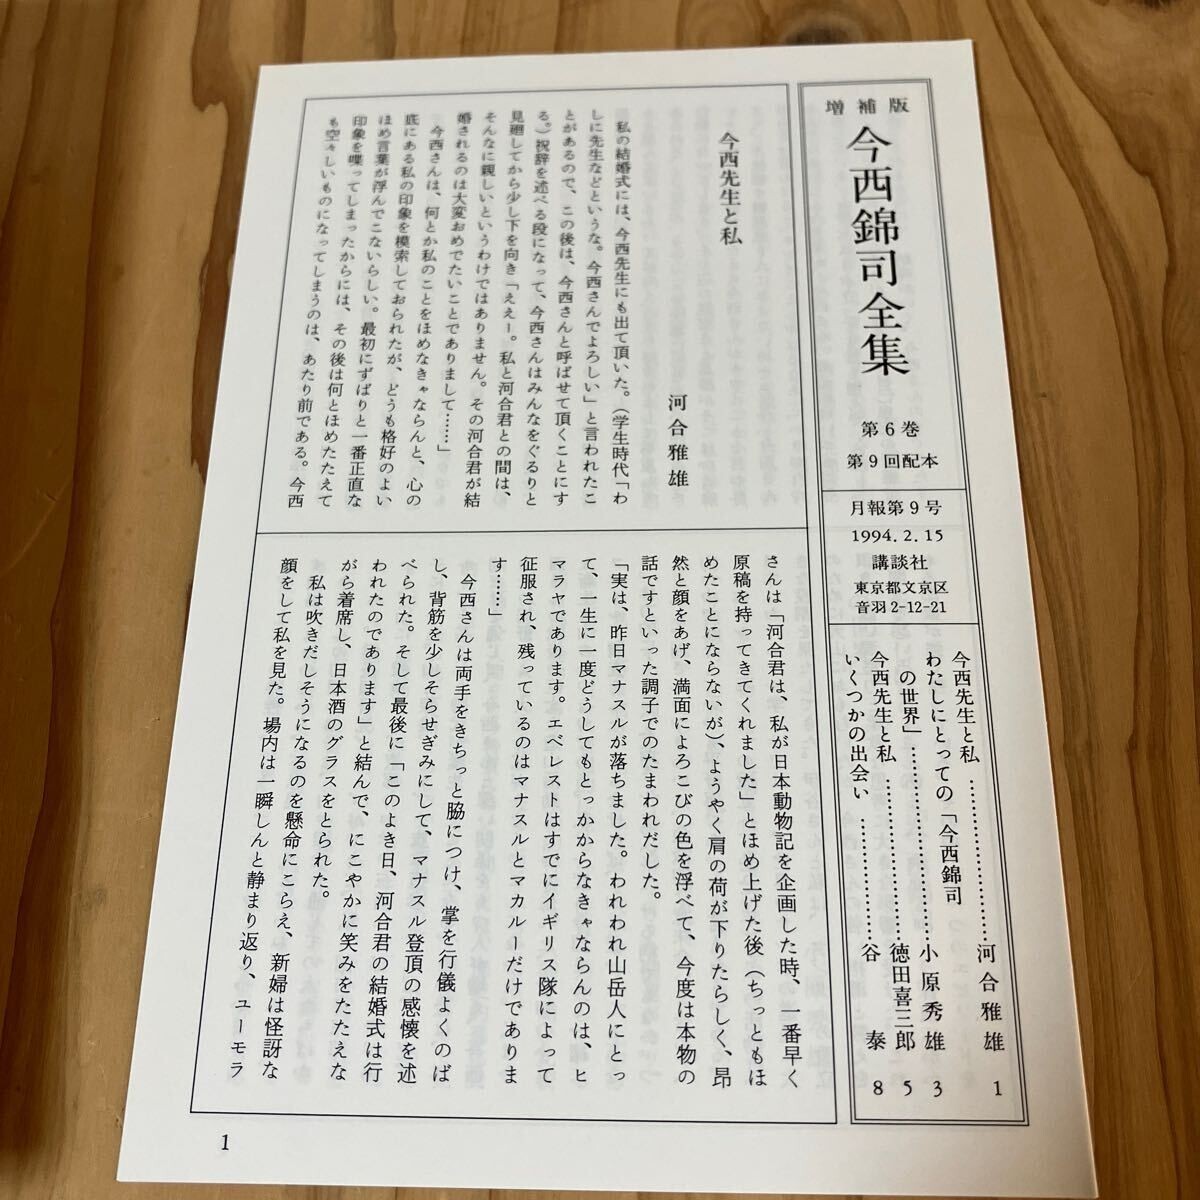 増補版
今西錦司全集
第6巻
第9回配本
月報第9号
1994.2.15
講談社
東京都文京区
音羽2-12-21
今西先生と私 ………………… 河合雅雄 1
わたしにとっての「今西錦司
の世界」………………小原秀雄 3
今西先生と私 ……………徳田喜三郎 5
いくつかの出会い …………… 谷 泰 8
今西先生と私
河合雅雄
私の結婚式には、今西先生にも出て頂いた。（学生時代「わ
しに先生などというな。今西さんでよろしい」と言われたこ
とがあるので、この後は、今西さんと呼ばせて頂くことにす
る。）祝辞を述べる段になって、今西さんはみんなをぐるりと
見廻してから少し下を向き「ええー。私と河合君との間は、
そんなに親しいというわけではありません。その河合君が結
婚されるのは大変おめでたいことでありまして……」
今西さんは、何とか私のことをほめなきゃならんと、心の
底にある私の印象を模索しておられたが、どうも格好のよい
ほめ言葉が浮んでこないらしい。最初にずばりと一番正直な
印象を喋ってしまったからには、その後は何とほめたたえて
も空々しいものになってしまうのは、あたり前である。今西
さんは「河合君は、私が日本動物記を企画した時、一番早く
原稿を持ってきてくれました」とほめ上げた後（ちっともほ
めたことにならないが）、ようやく肩の荷が下りたらしく、昂
然と顔をあげ、満面によろこびの色を浮べて、今度は本物の
話ですといった調子でのたまわれだした。
「実は、昨日マナスルが落ちました。われわれ山岳人にとっ
て、一生に一度どうしてもとっかからなきゃならんのは、ヒ
マラヤであります。エベレストはすでにイギリス隊によって
征服され、残っているのはマナスルとマカルーだけでありま
す……」
今西さんは両手をきちっと脇につけ、掌を行儀よくのば
し、背筋を少しそらせぎみにして、マナスル登頂の感懐を述
べられた。そして最後に「このよき日、河合君の結婚式は行
われたのであります」と結んで、にこやかに笑みをたたえな
がら着席し、日本酒のグラスをとられた。
私は吹きだしそうになるのを懸命にこらえ、新婦は怪訝な
顔をして私を見た。場内は一瞬しんと静まり返り、ユーモラ
1